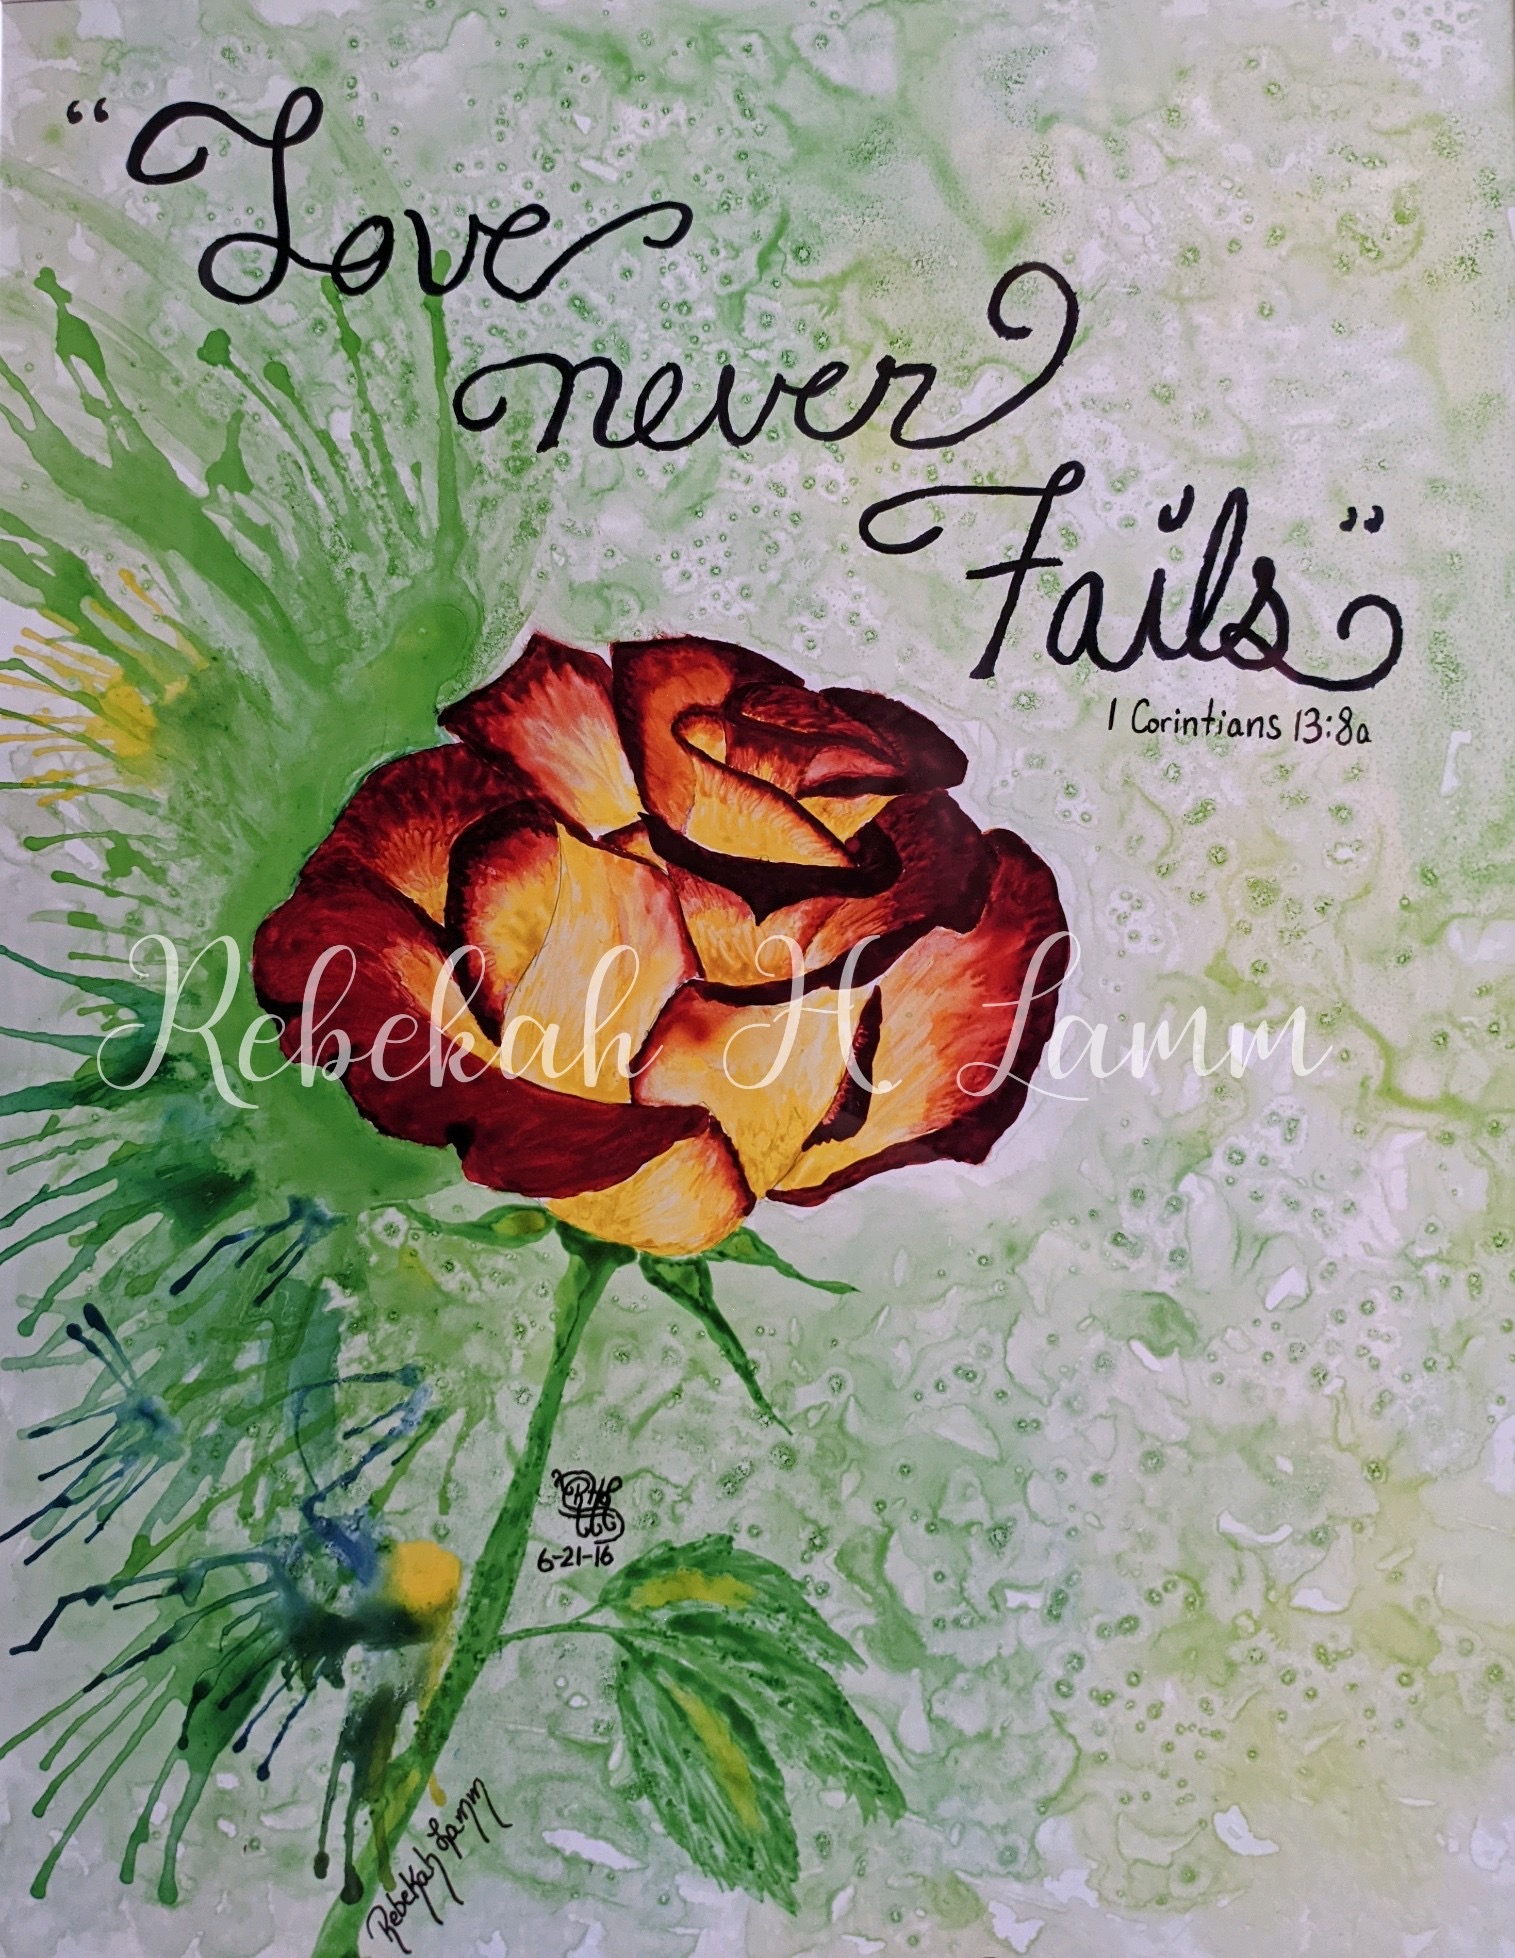 “Love
never
Fails”
1 Corintians 13:8a
Rebekah H. Lamm
6-21-16
Rebekah Lamm